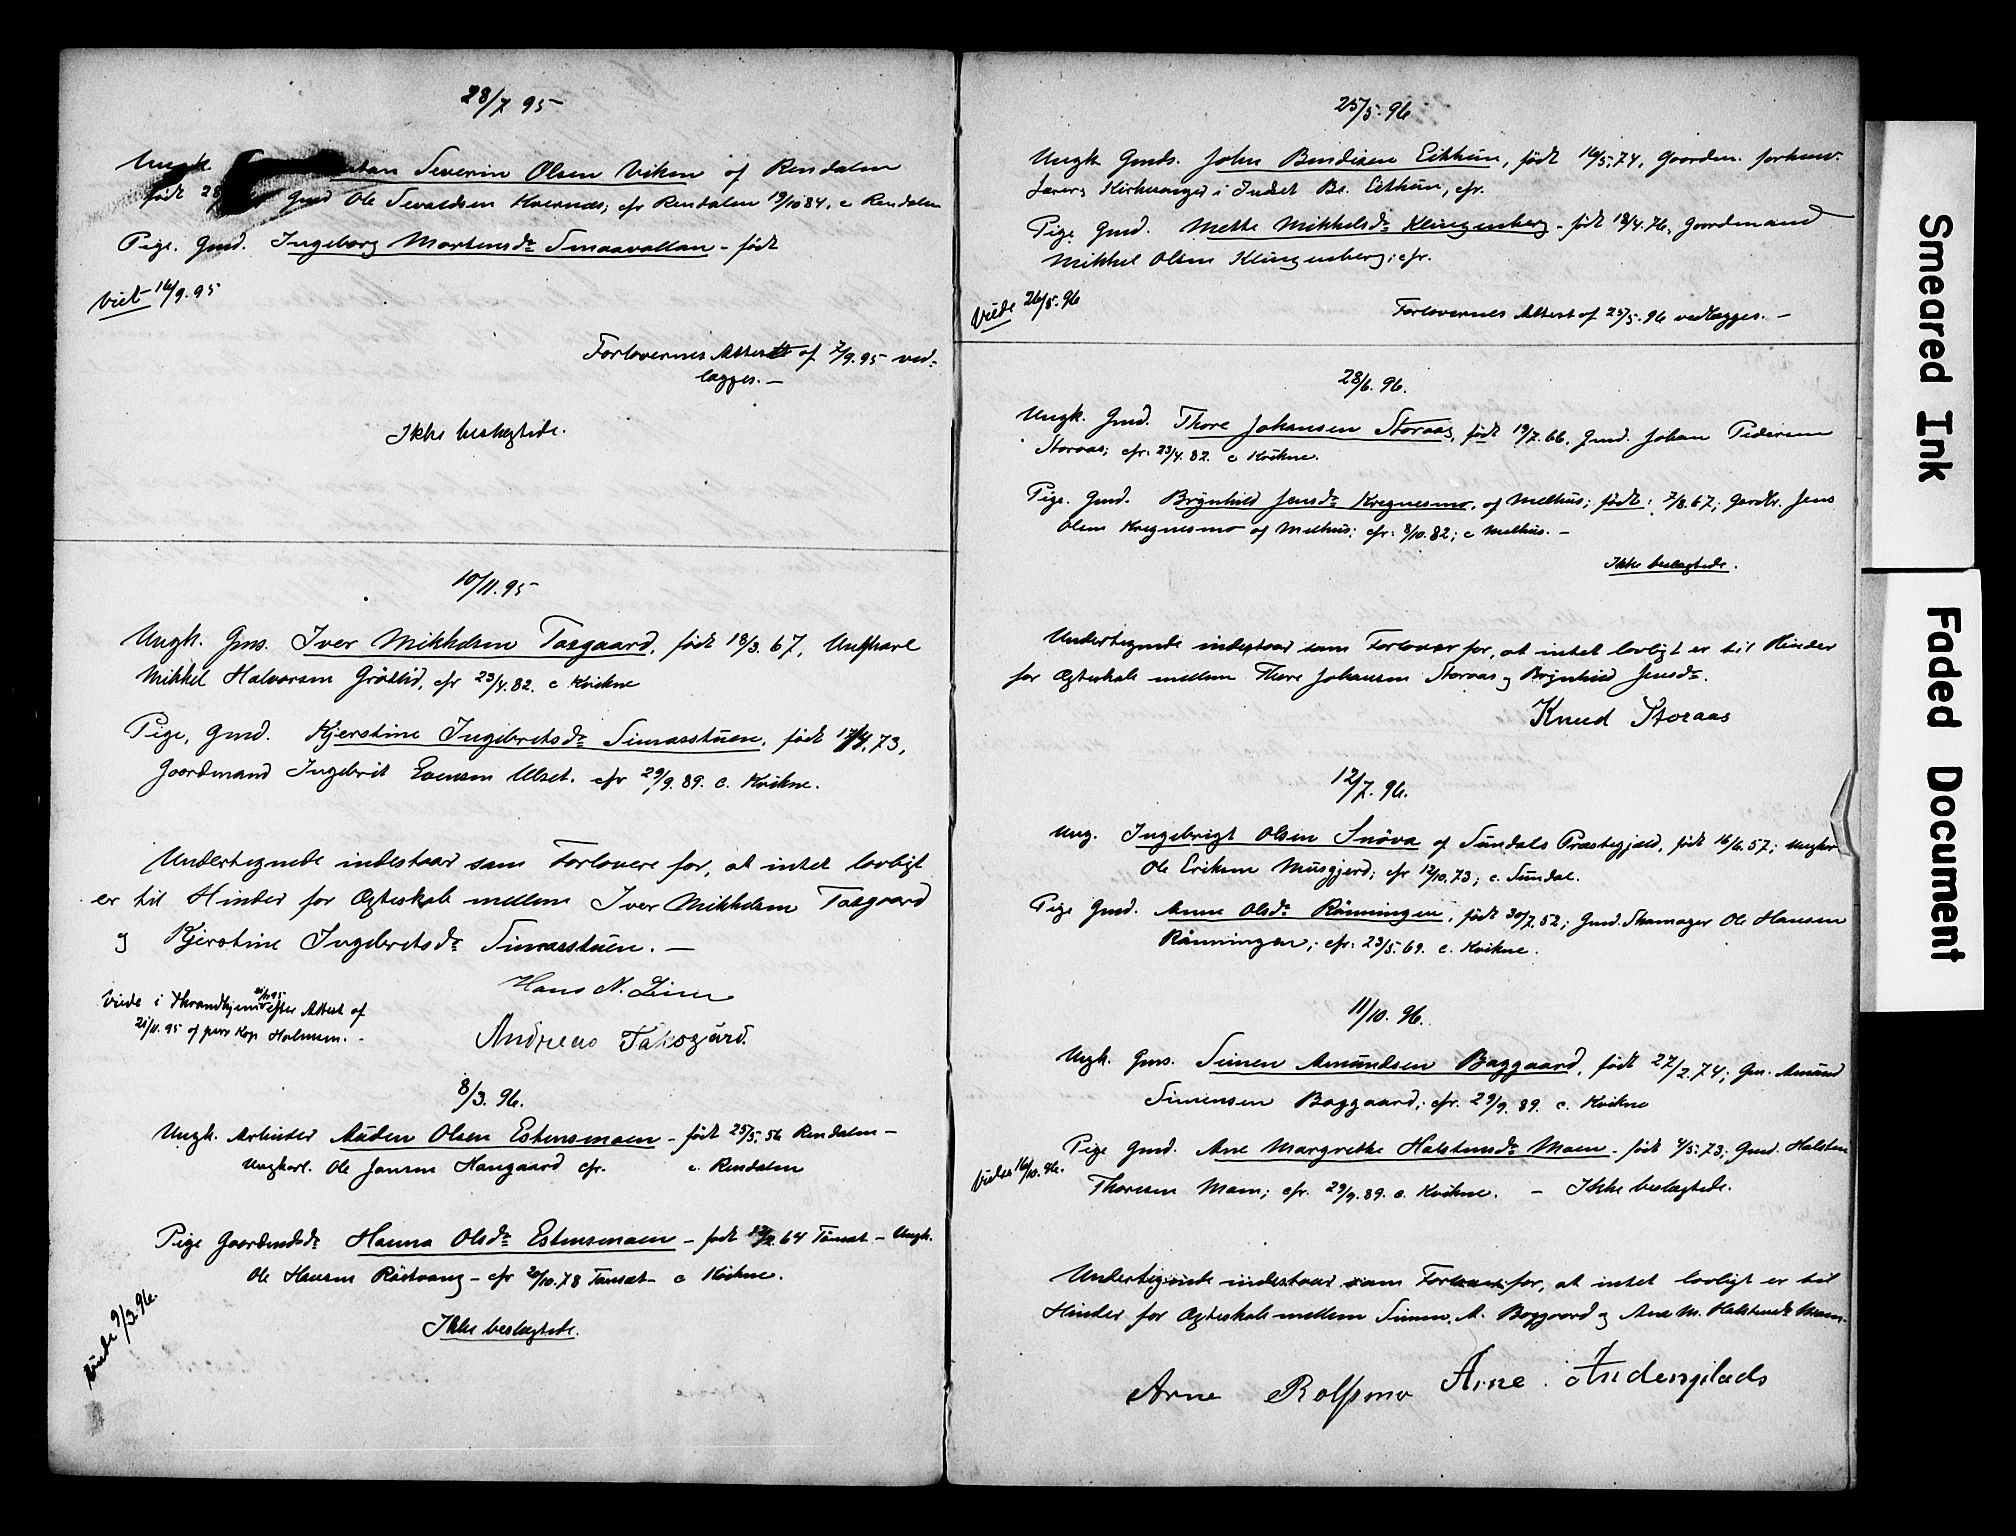 28/7 95
Ungk. Severin Olsen Viken af Rendalen
født Gmd Ole Sevaldsen Kvernæs; cfr Rendalen 19/10 84. c Rendalen
Pige. Gmd. Ingeborg Mortensdr Smaavollan - født
Viet 16/9.95
Forlovernes Attest af 7/9.95 ved-
lægges. -
Ikke beslægtede.
10/11.95
Ungk. Gms. Iver Mikkelsen Taxgaard, født 18/3.67, Ungkarl
Mikkel Halvorsen Grøtlid, cfr 23/4.82. c Kvikne
Pige, Gmd. Kjerstine Ingebretsdr Simaasstuen, født 17/4.73,
Gaardmand Ingebrit Evensen Ulset. cfr 29/9.89. c. Kvikne.
Undertegnede indestaar som Forlovere for, at intet lovligt
er til Hinder for Ægteskab mellem Iver Mikkelsen Taxgaard
og Kjerstine Ingebretsdr Simaasstuen. -
Hans N. Lien
Viede i Throndhjem efter Attest af
21/11.95 af pers Kap Halmsen. -
Andreas Taksgård.
8/3. 96.
Ungk. Arbeider Auden Olsen Estensmoen - født 25/5.56 Rendalen -
Ungkarl. Ole Jonsen Haugaard cfr. c. Rendalen
Pige Gaardmdsdr Hanna Olsdr Estensmoen - født 64 Tønset - Ungk.
Ole Hansen Røstvang - cfr 20/10.78 Tønset - c Kvikne.
Viede 9/3.96.
Ikke beslægtede.
25/5.96
Ungk. Gmds. John Bendixen Eithun, født 16/5.74, Gaardm. forhenv.
Lærer & Kirkesanger i Indset Bs. Eithun, cfr.
Pige Gmd. Mette Mikkelsdr Klingenberg - født 18/4.76, Gaardmand
Mikkel Olsen Klingenberg; cfr.
Viede 26/5.96
Forlovernes Attest af 25/5.96 vedlægges. -
28/6.96.
Ungk. Gmd. Thore Johansen Storaas, født 19/7.66. Gmd. Johan Pedersen
Storaas; cfr. 23/4.82. c Kvikne.
Pige. Gmd. Brynhild Jensdr Kregnesmo, af Melhus; født: 7/8.67; Gardbr. Jens
Olsen Kregnesmo af Melhus; cfr: 8/10.82; c Melhus. -
Ikke beslægtede.
Undertegnede indestaar som Forlover for, at intet lovligt er til Hinder
for Ægteskab mellem Thore Johansen Storaas og Brynhild Jensdr.
Knud Storaas
12/7.96.
Ung. Ingebrigt Olsen Snøva af Sundals Præstegjeld, født 16/6.57; Ungkar
Ole Eriksen Musgjerd; cfr 12/10.73; c. Sundal.
Pige Gmd. Anne Olsdr Rønningen, født 30/7.52; Gmd. Skomager Ole Hansen
Rønningen; cfr: 23/5.69. c. Kvikne.
11/10.96.
Ungk. Gms. Simen Amundsen Baggaard, født 27/2.74; Gm. Amund
Simensen Baggaard; cfr. 29/9.89. c. Kvikne
Pige Gmd. Ane Margrethe Halstensdr Moen - født 4/5.73; Gmd. Halsten
Thoresen Moen; cfr. 29/9.89. c. Kvikne. - Ikke beslægtede.
Viedes 16/10.96.
Undertegnede indestaar som Forlovere for, at intet lovligt er til
Hinder for Ægteskab mellem Simen A. Baggaard og Ane M. Halstensdr Moen.
Arne Rolfsmo Arne Andersgilads
Smeared Ink
Faded Document